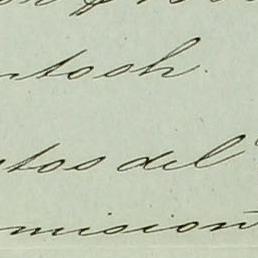 ntosh.
ntos del
misión